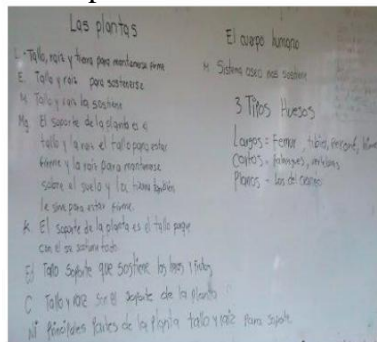 Las plantas
L - Tallo, raiz y tierra para mantenerse firme
E. Tallo y raiz para sostenerse.
M Tallo y raiz la sostiene
Mg El soporte de la planta es el
tallo y la raiz el tallo para estar
firme y la raiz para mantenerse
sobre el suelo y la tierra también
le sirve para estar firme.
K El soporte de la planta es el tallo porque
con el se sostiene todo
Ed Tallo soporte que sostiene las hojas y frutos
C Tallo y raiz son el soporte de la planta
Ni Principales Partes de la Planta tallo y raiz Para soporte
El cuerpo humano
M Sistema oseo nos sostiene
3 Tipos Huesos
Largos = Femur, tibia,
Cortos - falanges,
Planos - Los del craneo